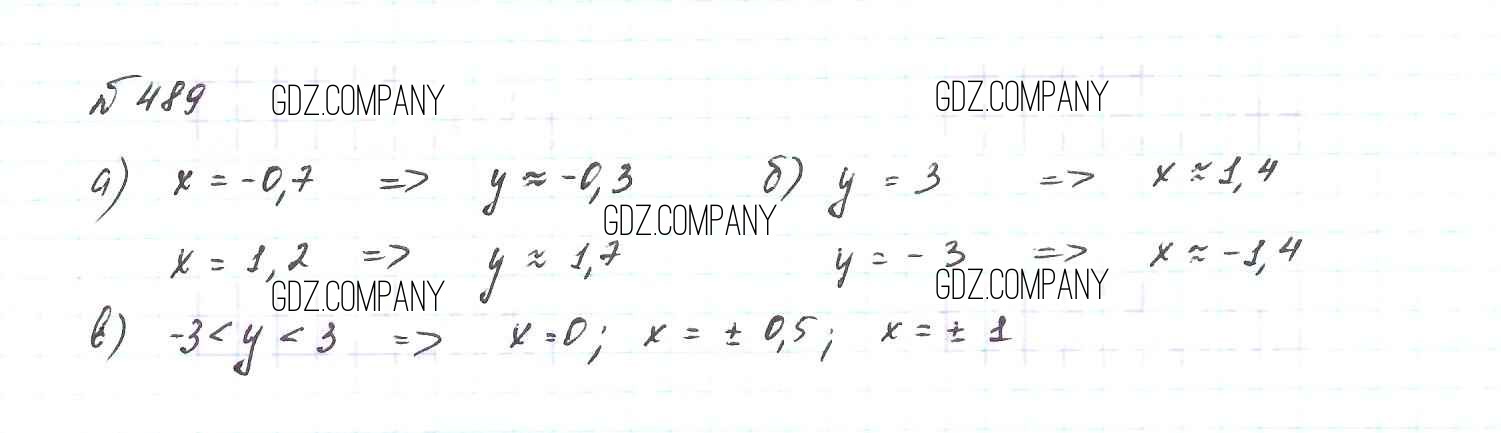 № 489 GDZ.COMPANY GDZ.COMPANY
а) x = -0,7 => y ≈ -0,3 б) y = 3 => x ≈ 1,4
GDZ.COMPANY
x = 1,2 => y ≈ 1,7 y = -3 => x ≈ -1,4
GDZ.COMPANY GDZ.COMPANY
в) -3 < y < 3 => x = 0; x = ± 0,5; x = ± 1